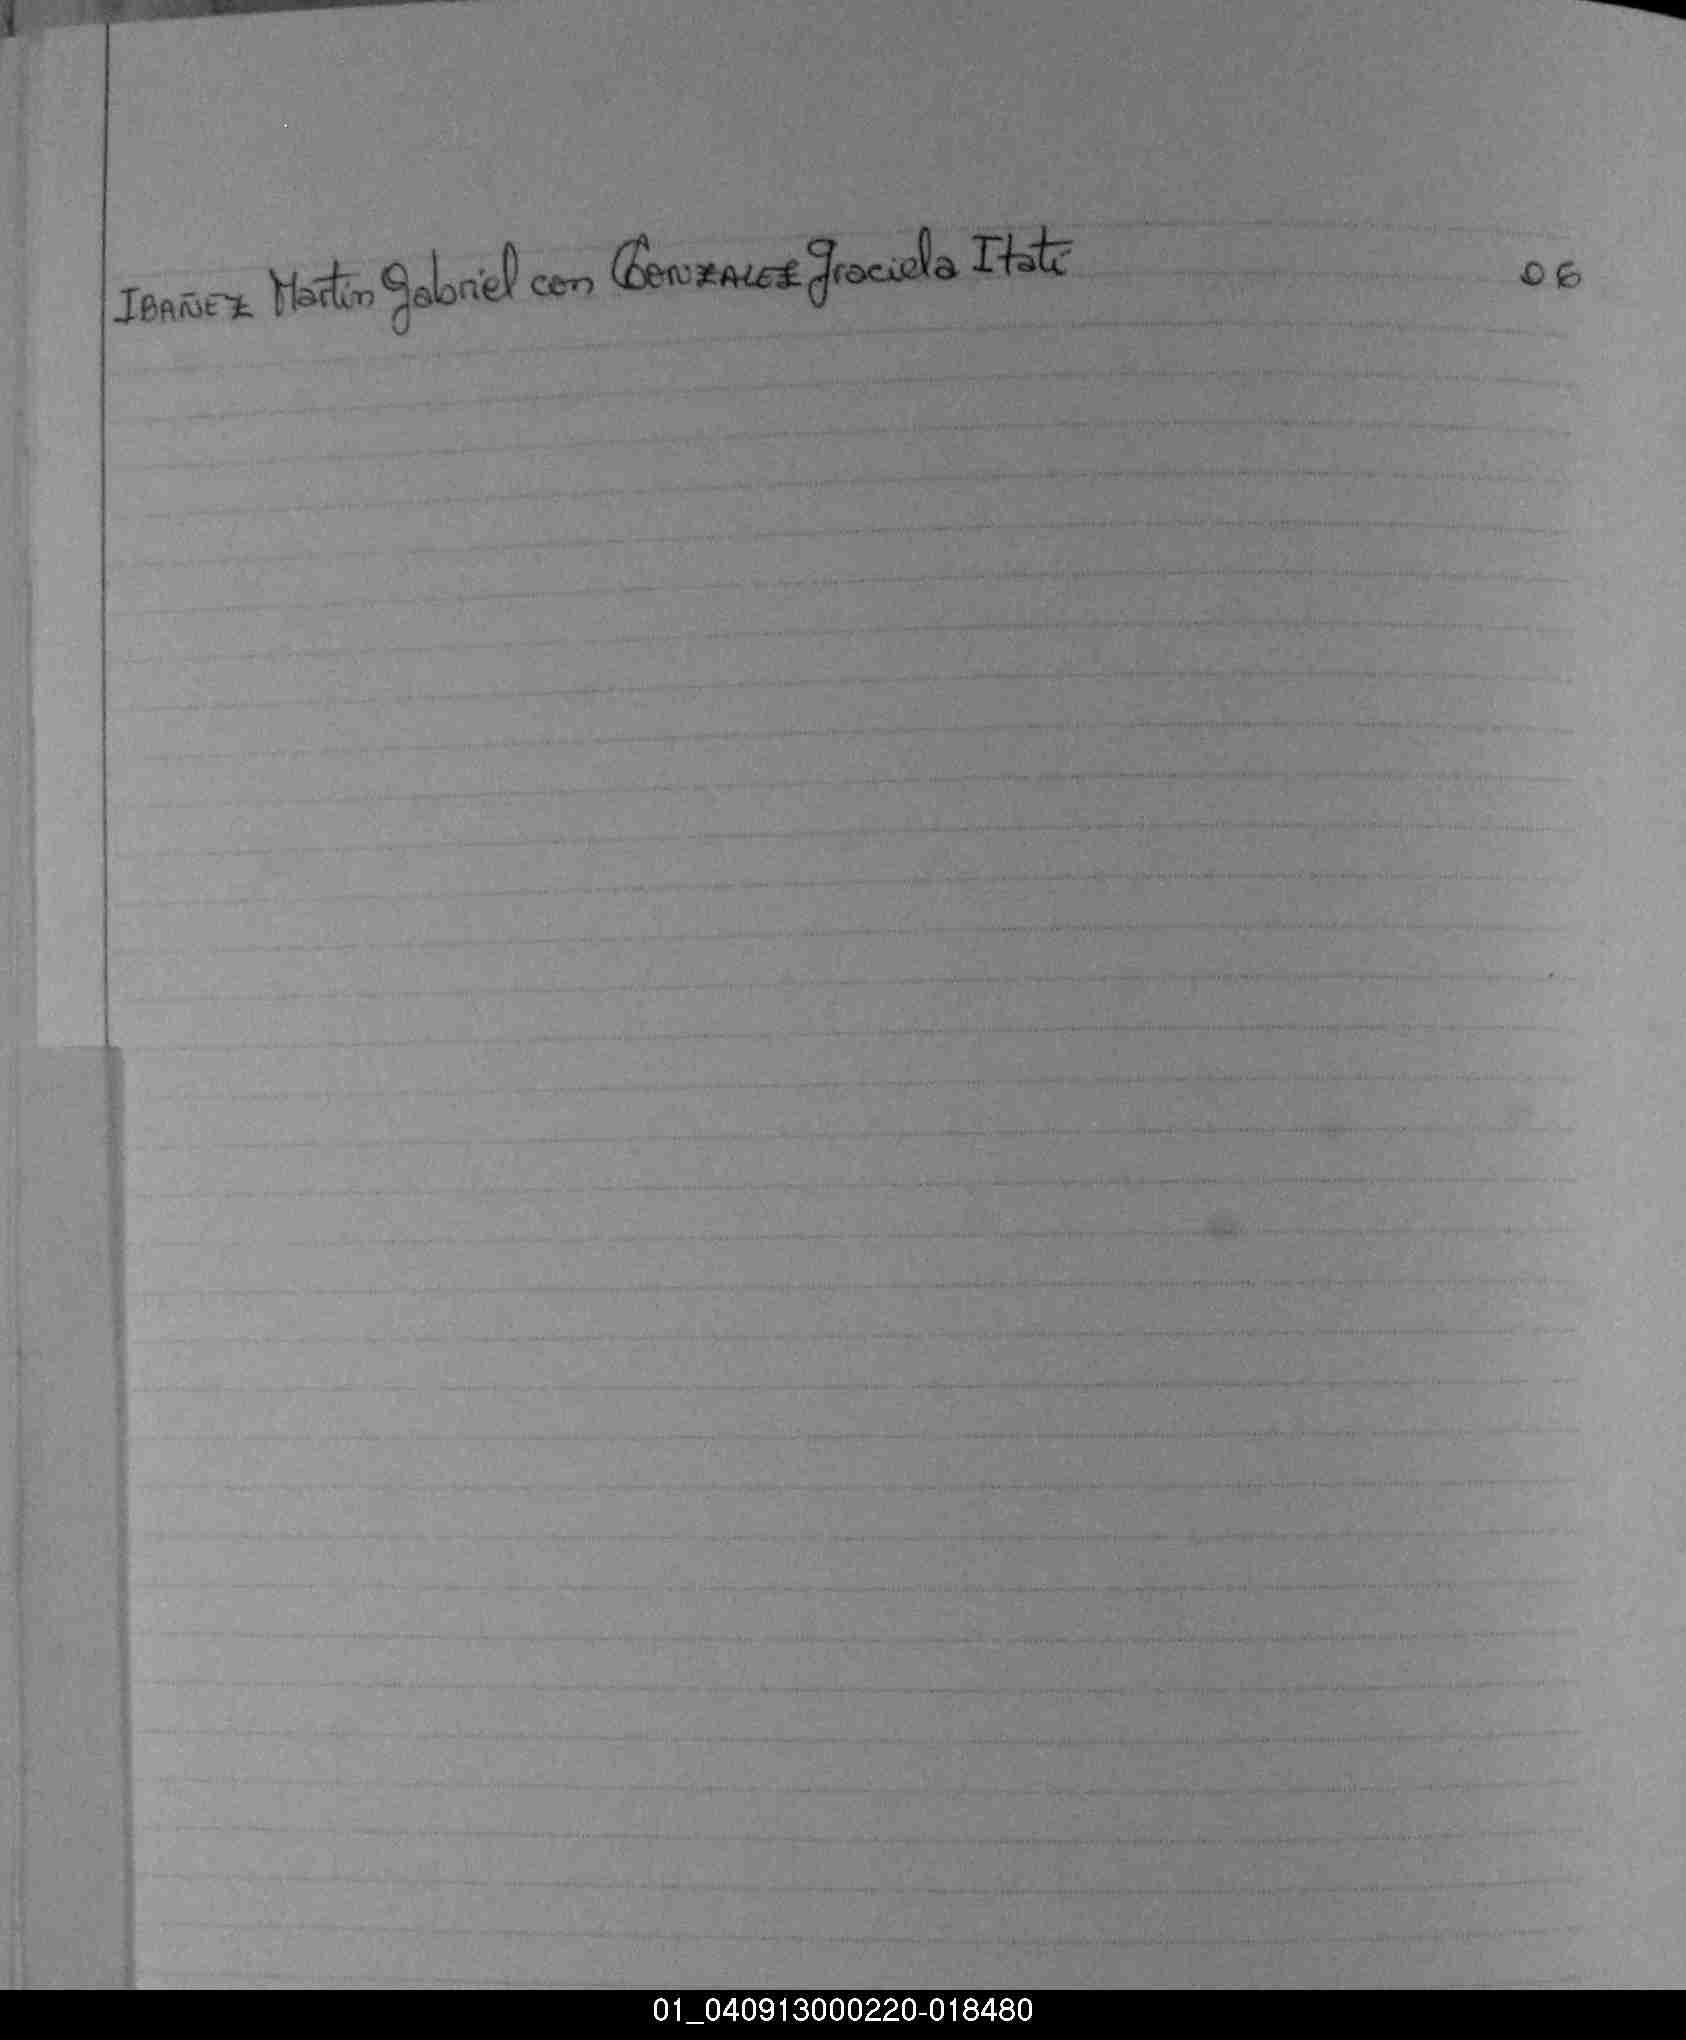 IBAÑEZ Martin Gabriel con GONZALEZ Graciela Itati 06
01_040913000220-018480